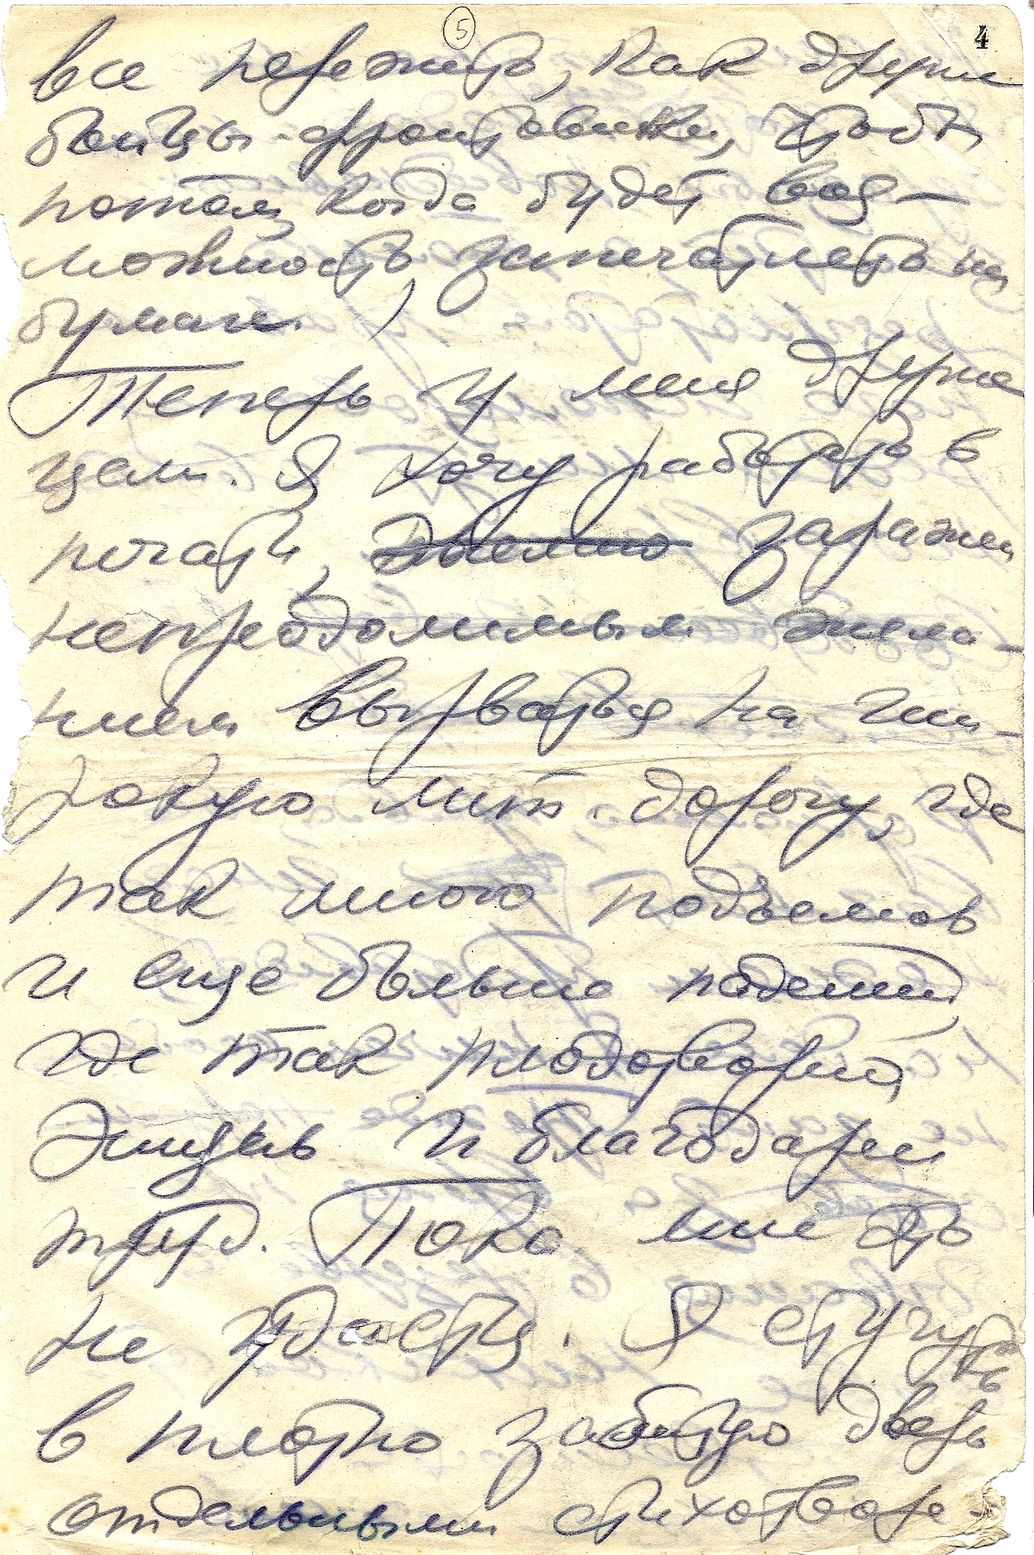 5 4
все пережить, как другие
бойцы-фронтовики, чтобы
потом, когда будет воз-
можность запечатлеть на
бумаге.
Теперь у меня другие
цели. Я хочу работать в
печати, заражен
непреодолимым жела-
нием вырваться на ши-
рокую лит. дорогу, где
так много подъемов
и еще больше падений,
где так плодотворна
жизнь и благодарен
труд. Пока мне это
не удается. Я стучусь
в плотно забитую дверь
отдельными стихотворе-